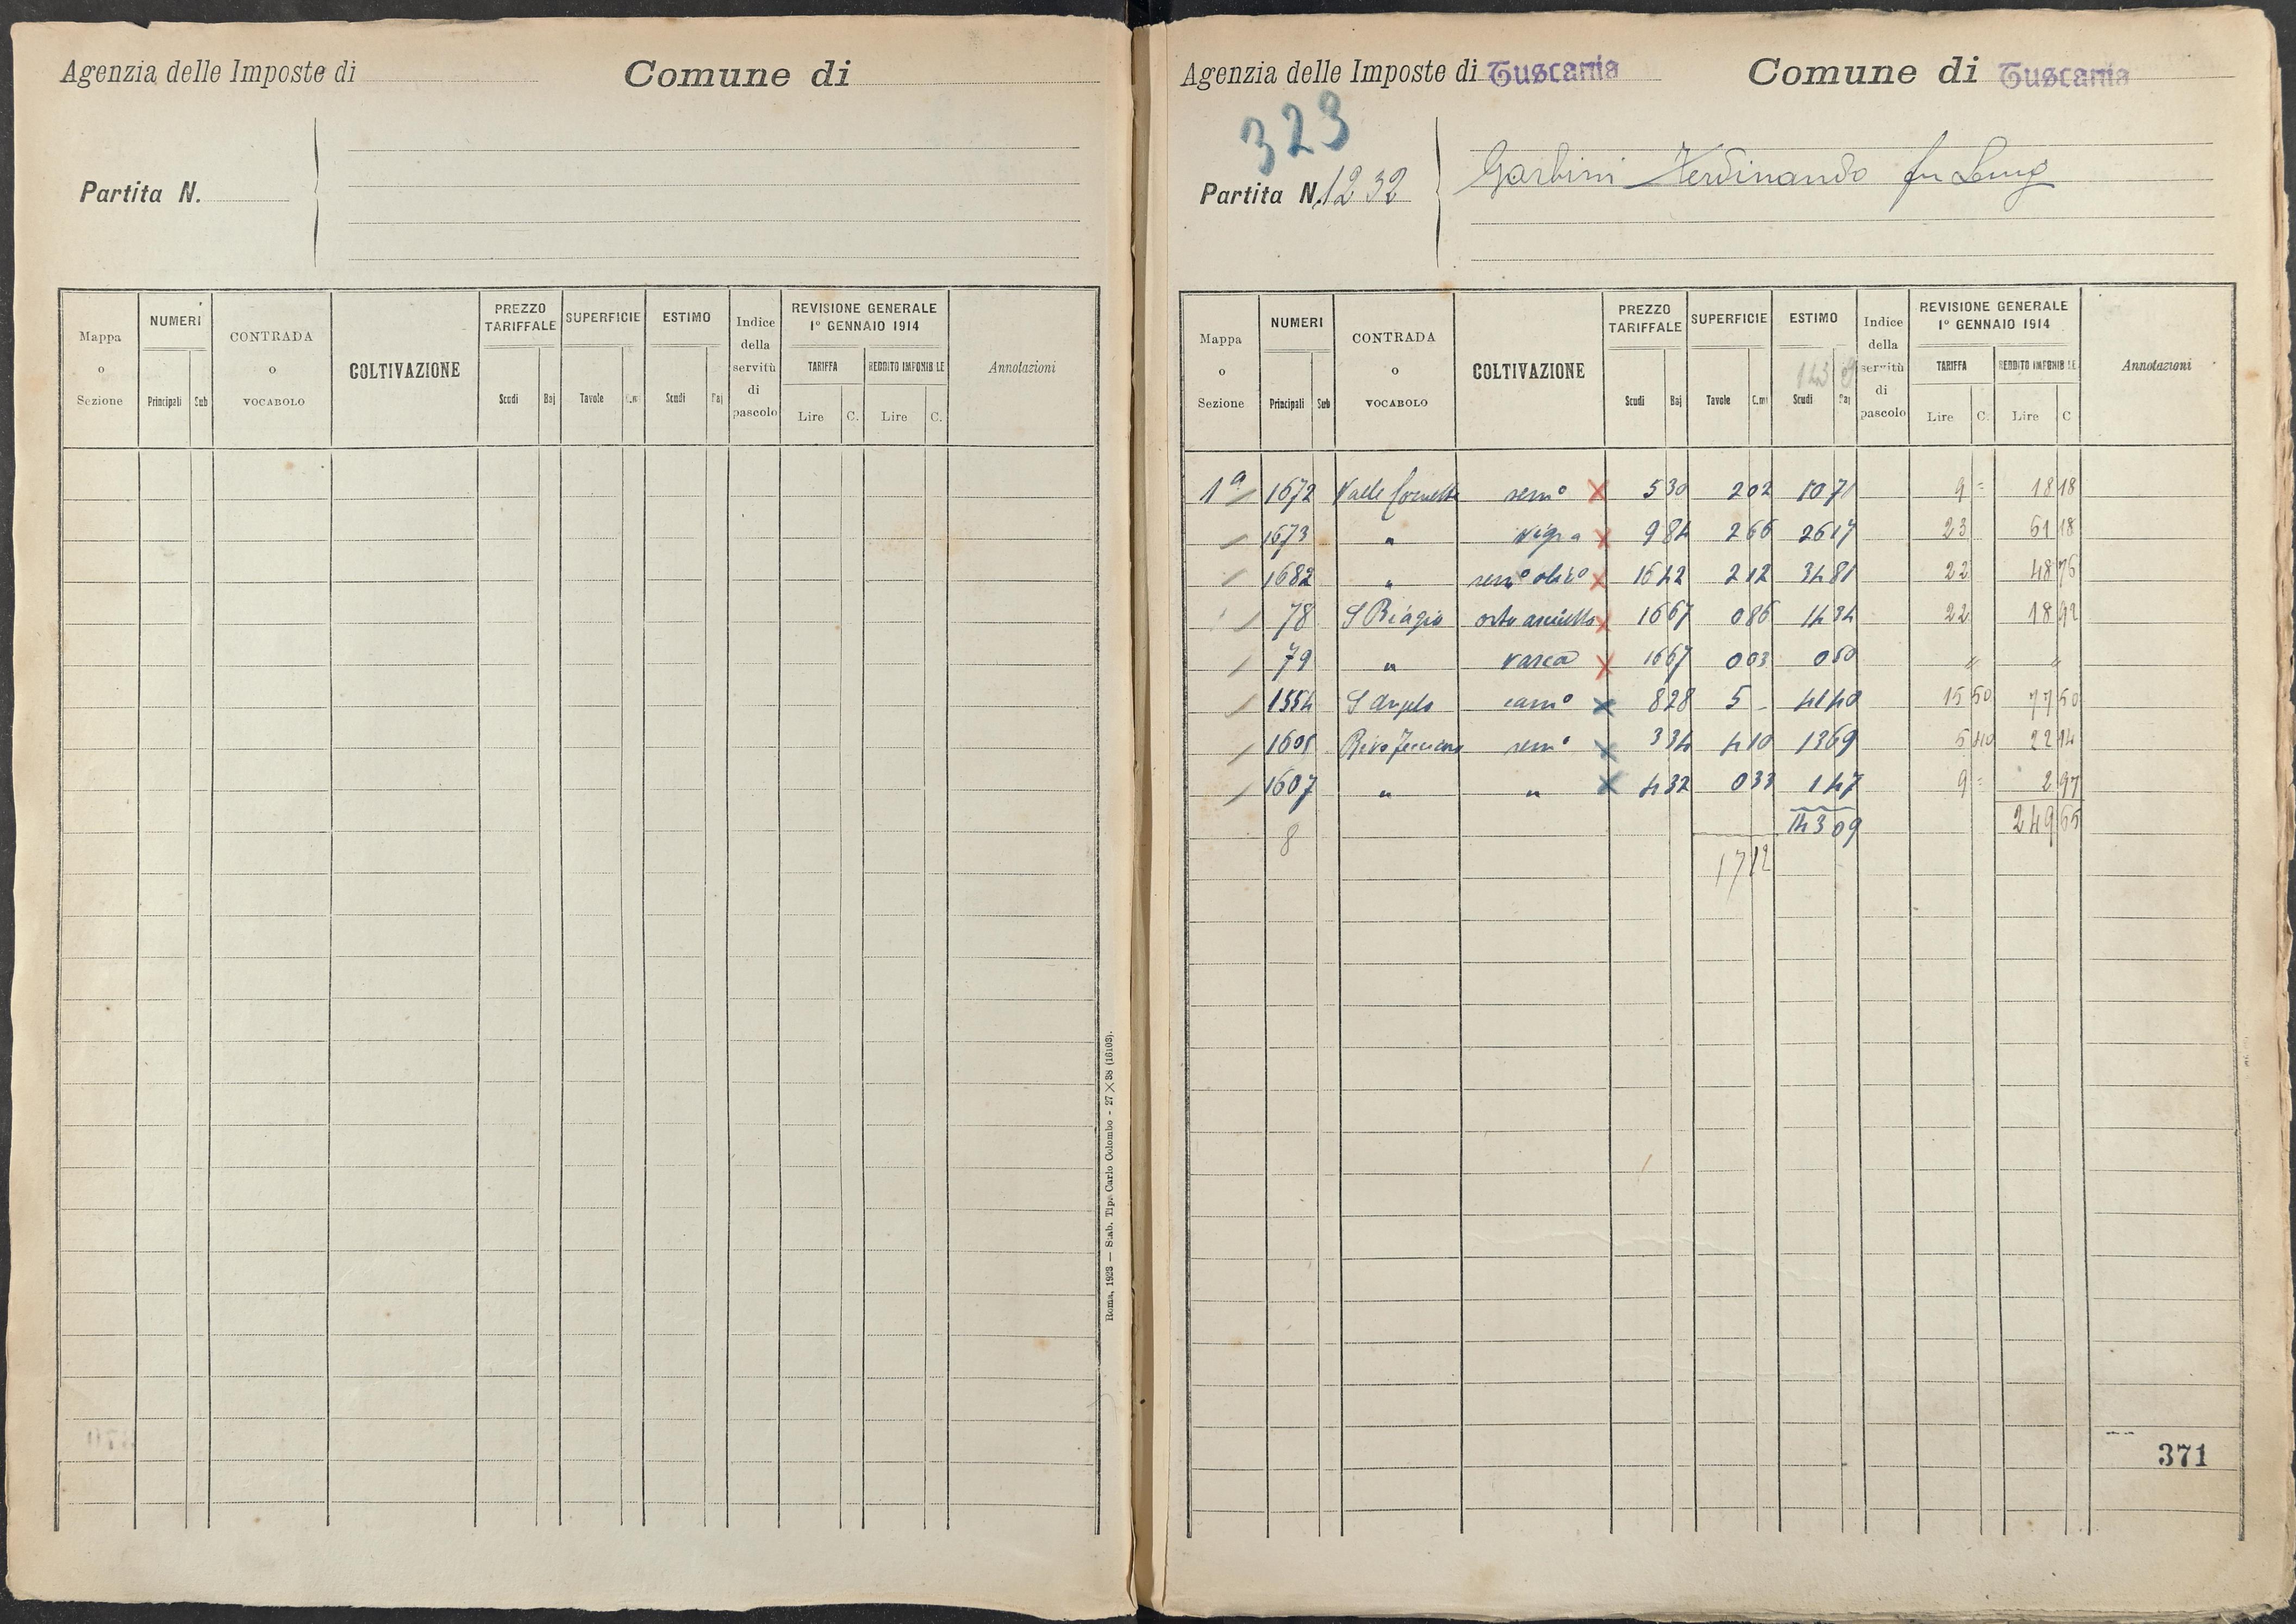 Agenzia delle Imposte di
Comune di
Partita N.
Mappa o Sezione
NUMERI
Principali Sub
CONTRADA o VOCABOLO
COLTIVAZIONE
PREZZO TARIFFALE
Scudi Baj
SUPERFICIE
Tavole C.mi
ESTIMO
Scudi Baj
Indice della servitù di pascolo
REVISIONE GENERALE
1º GENNAIO 1914
TARIFFA
Lire C.
REDDITO IMPONIBILE
Lire C.
Annotazioni
Roma, 1923 — Stab. Tip. Carlo Colombo - 27 × 38 (16103).
Agenzia delle Imposte di Tuscania
Comune di Tuscania
323
Partita N. 1232
Garbini Ferdinando fu Luigi
Mappa o Sezione
NUMERI
Principali Sub
CONTRADA o VOCABOLO
COLTIVAZIONE
PREZZO TARIFFALE
Scudi Baj
SUPERFICIE
Tavole C.mi
ESTIMO
143 09
Scudi Baj
Indice della servitù di pascolo
REVISIONE GENERALE
1º GENNAIO 1914
TARIFFA
Lire C.
REDDITO IMPONIBILE
Lire C
Annotazioni
1ª 1672 Valle semº x 5 30 2 02 10 71 9 = 18 18
1673 " vigna x 9 84 2 66 26 17 23 61 18
1682 " semº olivº x 16 42 2 12 34 81 22 48 76
78 S Biagio orto asciutto x 16 67 0 86 14 34 22 18 92
79 " vasca x 16 67 0 03 0 50 " "
1554 S Angelo x 8 28 5 - 41 40 15 50 77 50
1605 semº x 3 34 4 10 13 69 5 40 22 14
1607 " " x 4 32 0 33 1 47 9 = 2 97
8 143 09 249 65
17 12
371